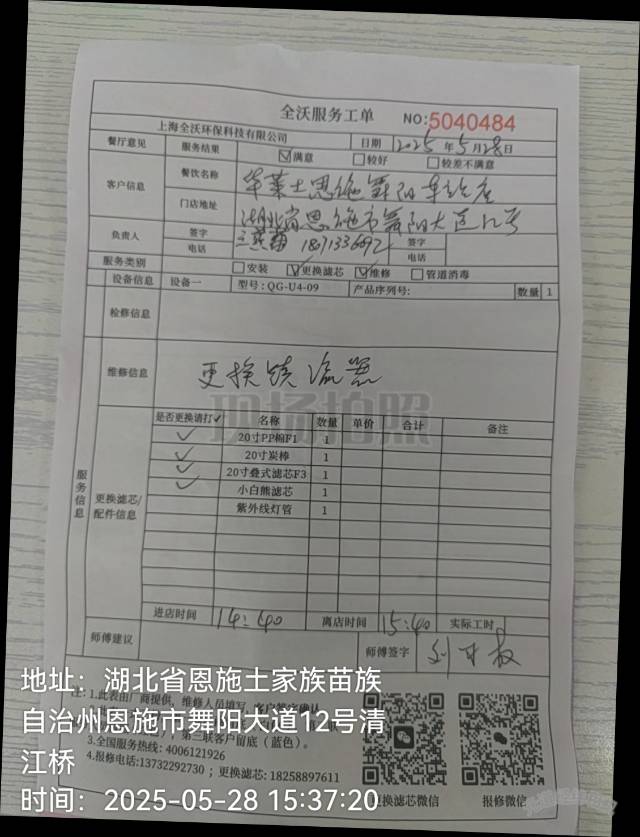 全沃服务工单 NO:5040484
上海全沃环保科技有限公司 日期 2025年5月28日
餐厅意见 服务结果 ☑满意 □较好 □较差不满意
客户信息 餐饮名称 华莱士恩施舞阳车站店
门店地址 湖北省恩施市舞阳大道12号
负责人 签字 签字
电话 电话
服务类别 □安装 ☑更换滤芯 ☑维修 □管道消毒
设备信息 设备一 型号:QG-U4-09 产品序列号: 数量 1
检修信息
维修信息 更换镇流器
服务信息
更换滤芯/配件信息
是否更换请打✓ 名称 数量 单价 合计 备注
✓ 20寸PP棉F1 1
✓ 20寸炭棒 1
✓ 20寸叠式滤芯F3 1
✓ 小白熊滤芯 1
紫外线灯管 1
现场拍照
进店时间 14:40 离店时间 15:40 实际工时
师傅建议 师傅签字
注:1.此表由厂商提供,维修人员填写,客户签字确认
第三联客户留底(蓝色)。
3.全国服务热线:4006121926
4.报修电话:13732292730;更换滤芯:18258897611
更换滤芯微信 报修微信
地址:湖北省恩施土家族苗族
自治州恩施市舞阳大道12号清
江桥
时间:2025-05-28 15:37:20